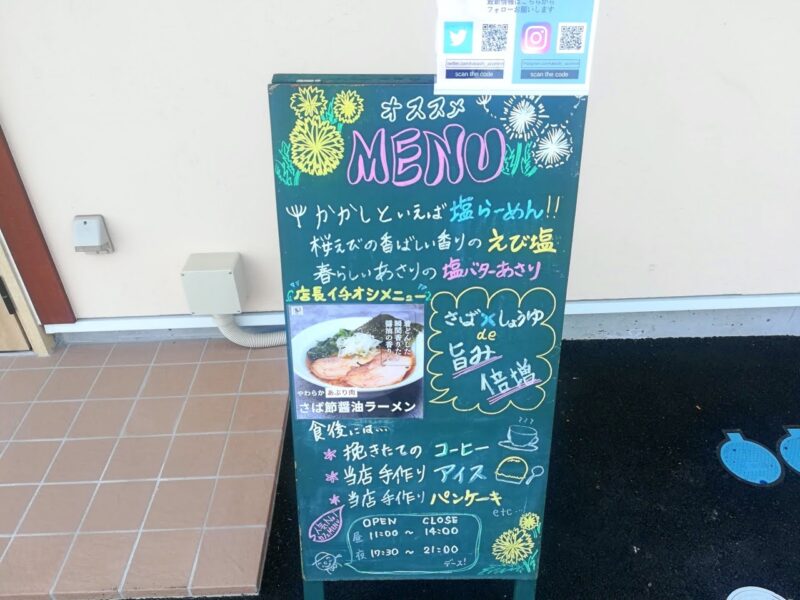 最新情報はこちらから
フォローお願いします
scan the code
scan the code
オススメ
MENU
かかしといえば 塩らーめん!!
桜えびの香ばしい香りの えび塩
春らしいあさりの 塩バターあさり
店長イチオシメニュー
さば×しょうゆ
de
旨み
倍増
着どんした
瞬間香りた
醤油の香り
やわらか あぶり肉
さば節醤油ラーメン
食後には…
挽きたての コーヒー
当店手作り アイス
当店手作り パンケーキ
etc…
人気No1
OPEN CLOSE
昼 11:00 ～ 14:00
夜 17:30 ～ 21:00
デース!